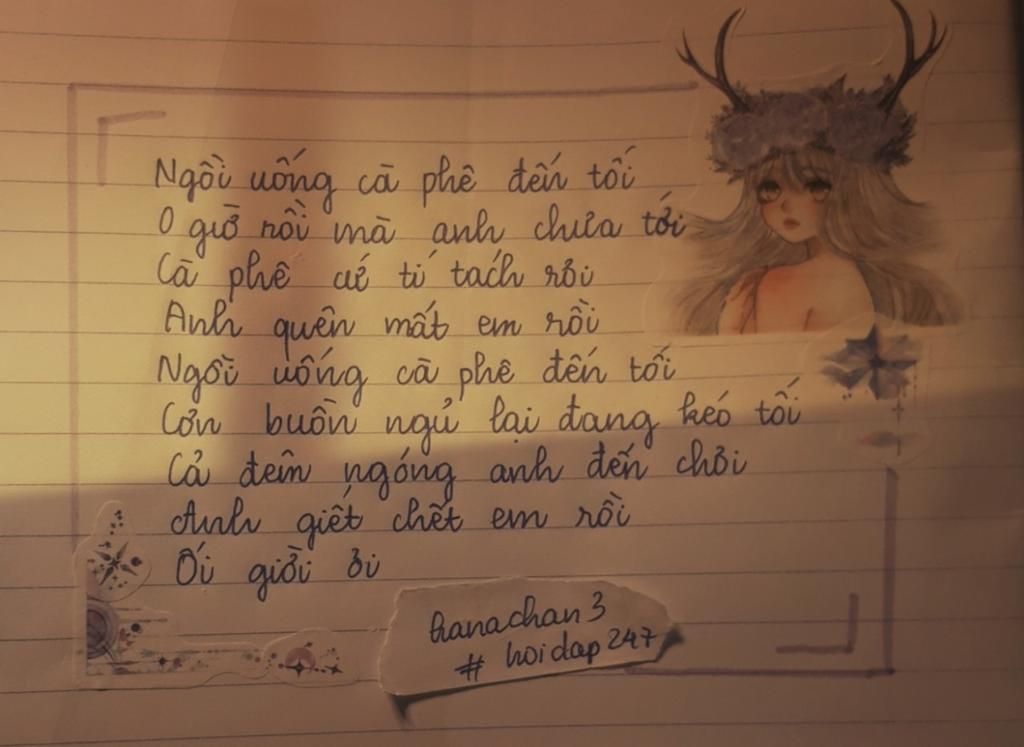 Ngồi uống cà phê đến tối
0 giờ rồi mà anh chưa tới
Cà phê cứ tí tách rơi
Anh quên mất em rồi
Ngồi uống cà phê đến tối
Cơn buồn ngủ lại đang kéo tới
Cả đêm ngóng anh đến chơi
Anh giết chết em rồi
Ối giời ơi
hanachan3
# hoidap247